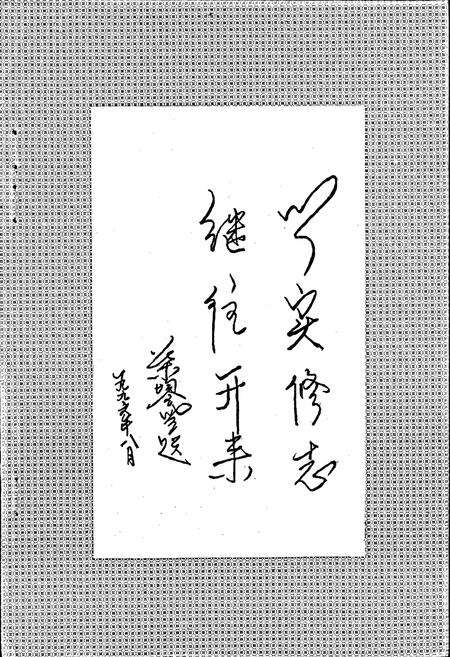 以实修志
继往开来
题
一九九六年八月